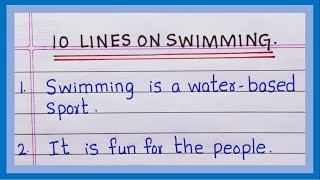 10 LINES ON SWIMMING.
1. Swimming is a water-based
sport.
2. It is fun for the people.